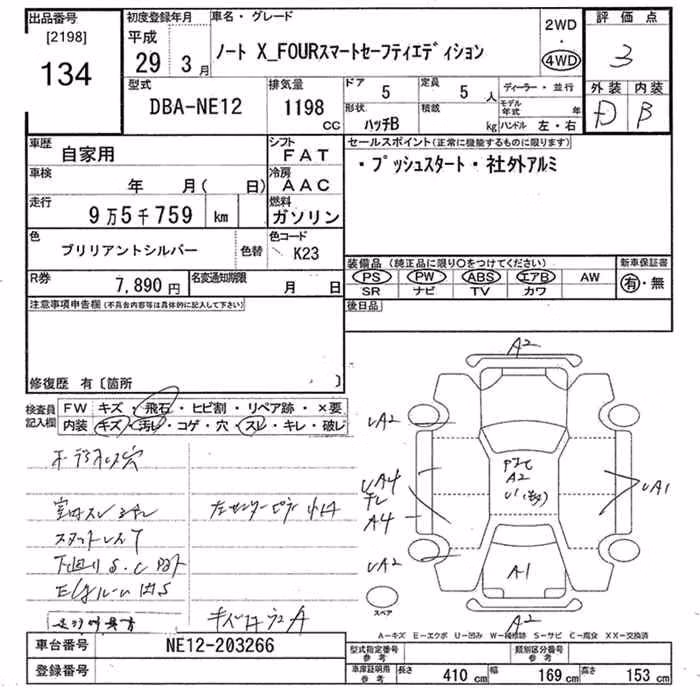 出品番号
[2198]
134
初度登録年月
平成
29 3月
車名・グレード
ノート X_FOURスマートセーフティエディション
2WD
・
4WD
評価点
3
型式
DBA-NE12
排気量
1198
CC
ドア 5
定員 5 人
形状
ハッチB
積載
kg
ディーラー・並行
モデル年式 年
ハンドル 左・右
外装 内装
D B
車歴
自家用
シフト
FAT
車検
年 月( 日)
冷房
AAC
走行
9万5千759 km
燃料
ガソリン
色
ブリリアントシルバー
色替
色コード
K23
R券
7,890円
名変通知期限
月 日
セールスポイント(正常に機能するものに限ります)
・プッシュスタート・社外アルミ
装備品(純正品に限り○をつけてください)
新車保証書
PS PW ABS エアB AW
SR ナビ TV カワ
有・無
後日品
注意事項申告欄(不具合内容等は具体的に記入して下さい)
修復歴 有〔箇所 〕
検査員記入欄
FW キズ・飛石・ヒビ割・リペア跡・×要
内装 キズ・汚レ・コゲ・穴・スレ・キレ・破レ
A2
UA2
UA4
A4
UA2
A2
UA1
A1
A2
スペア
A-キズ E-エクボ U-凹み W-補修跡 S-サビ C-腐食 XX-交換済
車台番号
NE12-203266
登録番号
型式指定番号
参考
類別区分番号
参考
車庫証明用
参考
長さ 410 cm 幅 169 cm 高さ 153 cm